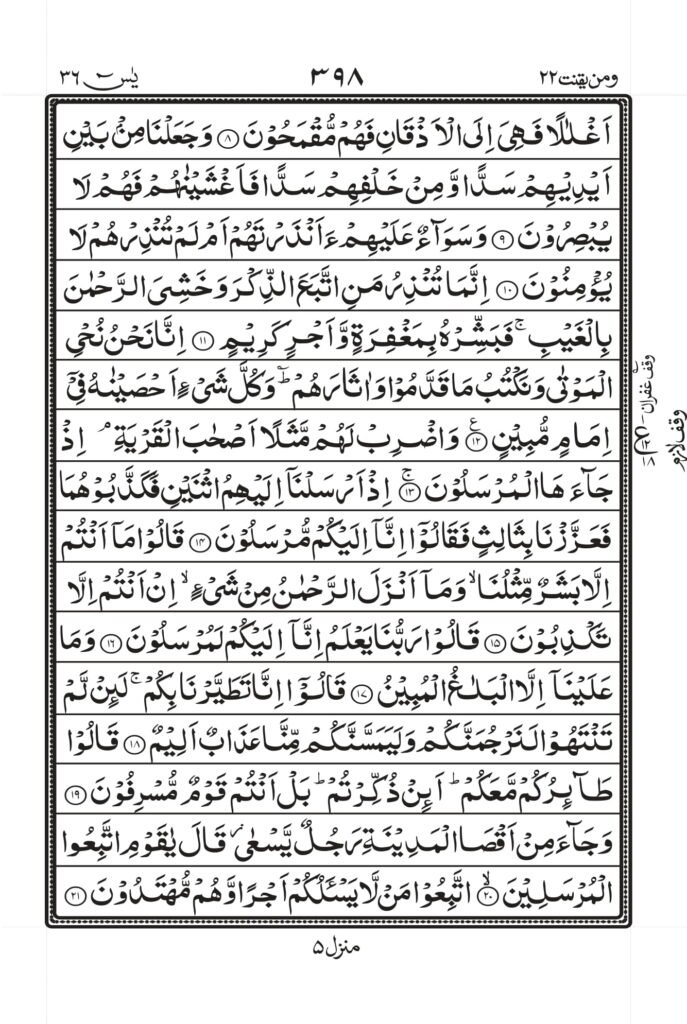 ومن يقنت ٢٢
٣٩٨
يٰسٓ ٣٦
اَغْلٰلًا فَهِىَ اِلَى الْاَذْقَانِ فَهُمْ مُّقْمَحُوْنَ ﴿۸﴾ وَجَعَلْنَا مِنْۢ بَيْنِ
اَيْدِيْهِمْ سَدًّا وَّمِنْ خَلْفِهِمْ سَدًّا فَاَغْشَيْنٰهُمْ فَهُمْ لَا
يُبْصِرُوْنَ ﴿۹﴾ وَسَوَآءٌ عَلَيْهِمْ ءَاَنْذَرْتَهُمْ اَمْ لَمْ تُنْذِرْهُمْ لَا
يُؤْمِنُوْنَ ﴿۱۰﴾ اِنَّمَا تُنْذِرُ مَنِ اتَّبَعَ الذِّكْرَ وَخَشِىَ الرَّحْمٰنَ
بِالْغَيْبِ ۚ فَبَشِّرْهُ بِمَغْفِرَةٍ وَّاَجْرٍ كَرِيْمٍ ﴿۱۱﴾ اِنَّا نَحْنُ نُحْىِ
الْمَوْتٰى وَنَكْتُبُ مَا قَدَّمُوْا وَاٰثَارَهُمْ ؕ وَكُلَّ شَىْءٍ اَحْصَيْنٰهُ فِىْۤ
اِمَامٍ مُّبِيْنٍ ﴿۱۲﴾ وَاضْرِبْ لَهُمْ مَّثَلًا اَصْحٰبَ الْقَرْيَةِ ۘ اِذْ
جَآءَهَا الْمُرْسَلُوْنَ ﴿۱۳﴾ۚ اِذْ اَرْسَلْنَاۤ اِلَيْهِمُ اثْنَيْنِ فَكَذَّبُوْهُمَا
فَعَزَّزْنَا بِثَالِثٍ فَقَالُوْۤا اِنَّاۤ اِلَيْكُمْ مُّرْسَلُوْنَ ﴿۱۴﴾ قَالُوْا مَاۤ اَنْتُمْ
اِلَّا بَشَرٌ مِّثْلُنَا ۙ وَمَاۤ اَنْزَلَ الرَّحْمٰنُ مِنْ شَىْءٍ ۙ اِنْ اَنْتُمْ اِلَّا
تَكْذِبُوْنَ ﴿۱۵﴾ قَالُوْا رَبُّنَا يَعْلَمُ اِنَّاۤ اِلَيْكُمْ لَمُرْسَلُوْنَ ﴿۱۶﴾ وَمَا
عَلَيْنَاۤ اِلَّا الْبَلٰغُ الْمُبِيْنُ ﴿۱۷﴾ قَالُوْۤا اِنَّا تَطَيَّرْنَا بِكُمْ ۚ لَئِنْ لَّمْ
تَنْتَهُوْا لَنَرْجُمَنَّكُمْ وَلَيَمَسَّنَّكُمْ مِّنَّا عَذَابٌ اَلِيْمٌ ﴿۱۸﴾ قَالُوْا
طَآئِرُكُمْ مَّعَكُمْ ؕ اَئِنْ ذُكِّرْتُمْ ؕ بَلْ اَنْتُمْ قَوْمٌ مُّسْرِفُوْنَ ﴿۱۹﴾
وَجَآءَ مِنْ اَقْصَا الْمَدِيْنَةِ رَجُلٌ يَّسْعٰى ۫ قَالَ يٰقَوْمِ اتَّبِعُوا
الْمُرْسَلِيْنَ ﴿۲۰﴾ۙ اتَّبِعُوْا مَنْ لَّا يَسْئَلُكُمْ اَجْرًا وَّهُمْ مُّهْتَدُوْنَ ﴿۲۱﴾
وقف غفران
وقف لازم
منزل ۵